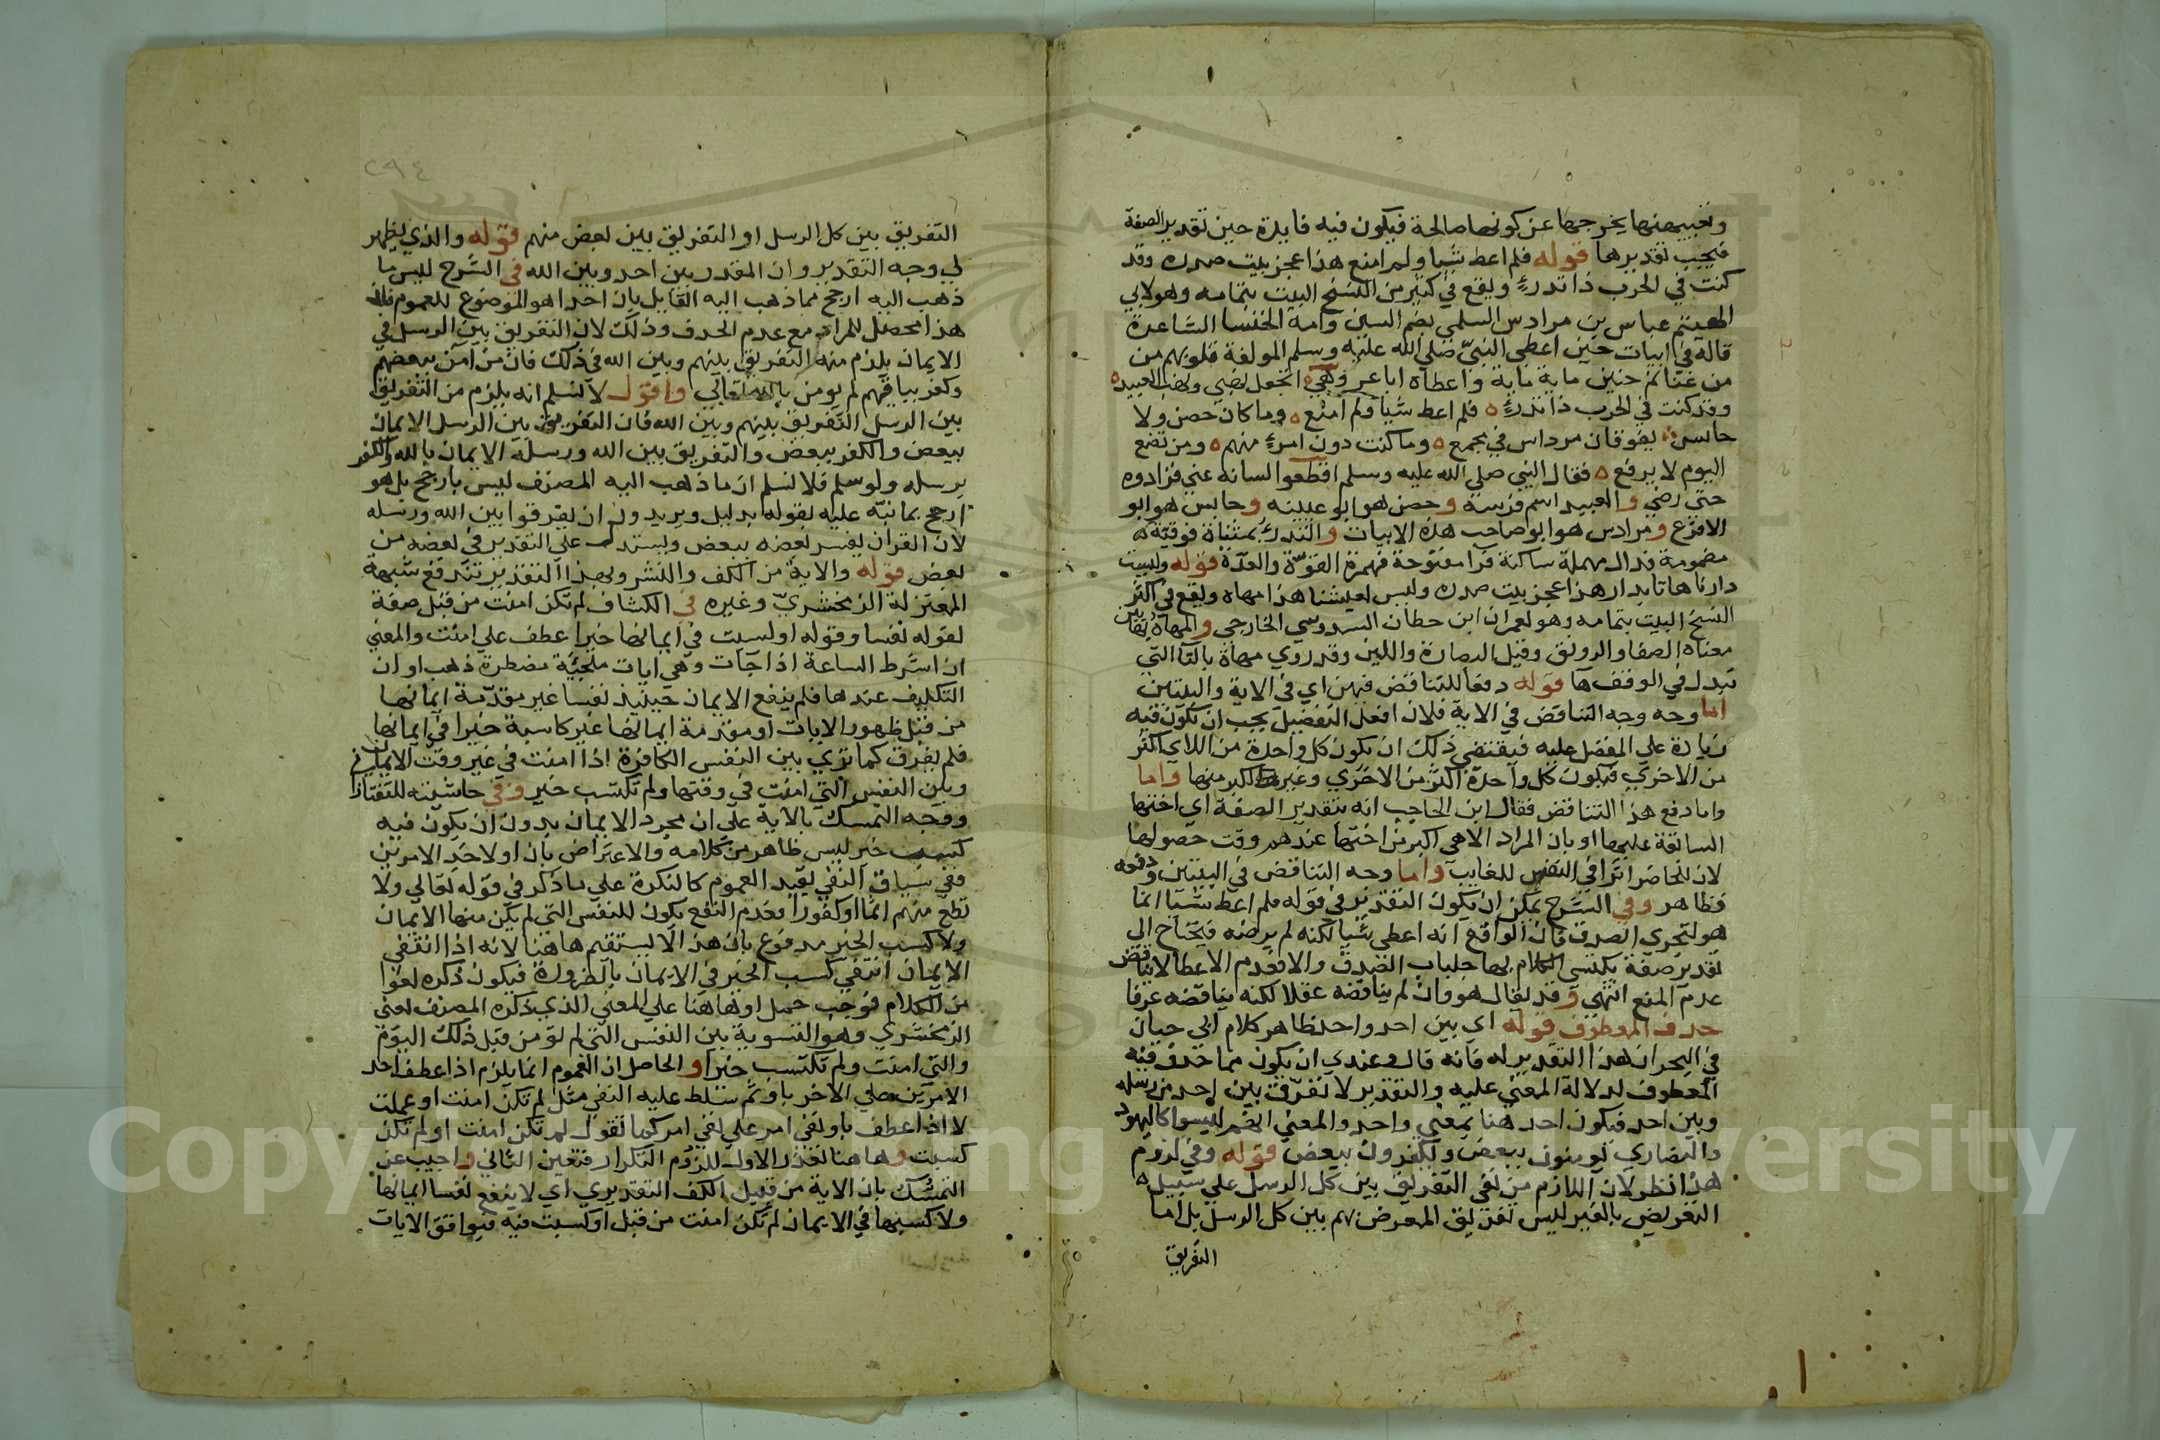 وتعييبه منها يخرجها عن كونها صالحة فيكون فيه فايدة حين تقدير الصفة
فيجب تقديرها قوله فلم اعط شيا ولم امنع هذا عجز بيت صدره وقد
كنت في الحرب ذا تدرء ويقع في كثير من النسخ البيت بتمامه وهو لابي
الهيثم عباس بن مرادس السلمي بضم السين وامه الخنسا الشاعرة
قاله في ابيات حين اعطي النبي صلي الله عليه وسلم المولفة قلوبهم من
من غنائم حنين ماية ماية واعطاه اباعر وهي اتجعل نهبي ونهب العبيد
وقد كنت في الحرب ذا تدرء فلم اعط شيا ولم امنع وما كان حصن ولا
حابس يفوقان مرداس في مجمع وما كنت دون امرء منهم ومن تضع
اليوم لا يرفع فقال النبي صلي الله عليه وسلم اقطعوا لسانه عني فزادوه
حتي رضي والعبيد اسم فرسه وحصن هو ابو عيينه وحابس هو ابو
الاقرع ومرادس هو ابو صاحب هذه الابيات والتدرء بمثناة فوقية
مضمومة فدال مهملة ساكنة فرا مفتوحة فهمزة القوة والعدة قوله وليست
دارنا هاتا بدار هذا عجز بيت صدره وليس لعيشنا هذا مهاه ويقع في اكثر
النسخ البيت بتمامه وهو لعمران ابن حطان السدوسي الخارجي والمهاه بهاين
معناه الصفا والرونق وقيل البصارة واللين وقد روي مهاة بالتا التي
تبدل في الوقف ها قوله دفعا للتناقض فيهن اي في الاية والبيتين
اما وجه وجه التناقض في الاية فلان افعل التفضيل يجب ان تكون فيه
زيادة علي المفضل عليه فيقتضي ذلك ان يكون كل واحدة من اللاي اكثر
من الاخري فيكون كل واحدة اكثر من الاخري وغير اكبر منها واما
واما دفع هذا التناقض فقال ابن الحاجب انه بتقدير الصفة اي اختها
السابقة عليها او بان المراد الا هي اكبر من اختها عندهم وقت حصولها
لان للحاضر اثرا في النفس للغايب واما وجه التناقض في البيتين ودفعه
فظاهر وفي الشرح يمكن ان يكون التقدير في قوله فلم اعط شيا انما
هو لتحري الصدق فان الواقع انه اعطي شيا لكنه لم يرضه فيحتاج الي
تقدير صفة يكتسي الكلام بها جلباب الصدق والا فعدم الاعطا لا يناقض
عدم المنع انتهي وقد يقال هو وان لم يناقضه عقلا لكنه يناقضه عرفا
حذف المعطوف قوله اي بين احد واحد ظاهر كلام ابي حيان
في البحر ان هذا التقدير له فانه قال وعندي ان يكون مما حذف فيه
المعطوف لدلالة المعني عليه والتقدير لا نفرق بين احد من رسله
وبين احد فيكون احد هنا بمعني واحد والمعني انهم ليسوا كاليهود
والنصاري يومنون ببعض ويكفرون ببعض قوله وفي لزوم
هذا نظر لان اللازم من نفي التفريق بين كل الرسل علي سبيل
التعريض بالغير ليس تفريق المعرض بهم بين كل الرسل بل اما
التفريق
٢٩٤
التفريق بين كل الرسل او التفريق بين بعض منهم قوله والذي يظهر
لي وجه التقدير وان المقدر بين احد وبين الله في الشرح ليس ما
ذهب اليه ارجح مما ذهب اليه القايل بان احدا هو الموضوع للعموم فان
هذا محصل للمراد مع عدم الحذف وذلك لان التفريق بين الرسل في
الايمان يلزم منه التفريق بينهم وبين الله في ذلك فان من امن ببعضهم
وكفر بباقيهم لم يومن بالله تعالي واقول لا نسلم انه يلزم من التفريق
بين الرسل التفريق بينهم وبين الله فان التفريق بين الرسل الايمان
ببعض والكفر ببعض والتفريق بين الله ورسله الايمان بالله والكفر
برسله ولو سلم فلا نسلم ان ما ذهب اليه المصنف ليس بارجح بل هو
ارجح بما نبه عليه بقوله بدليل ويريدون ان يفرقوا بين الله ورسله
لان القران يفسر بعضه ببعض ويستدل علي التقدير في بعضه من
بعض قوله والاية من اللف والنشر وبهذا التقدير تندفع شبهة
المعتزلة الزمخشري وغيره في الكشاف لم تكن امنت من قبل صفة
لقوله نفسا وقوله او لسبت في ايمانها خيرا عطف علي امنت والمعني
ان اشرط الساعة اذا جات وهي ايات ملجيئة مضطرة ذهب اوان
التكليف عندها فلم ينفع الايمان حينيذ نفسا غير مقدمة ايمانها
من قبل ظهور الايات او مقدمة ايمانها غير كاسبة خيرا في ايمانها
فلم يفرق كما تري بين النفس الكافرة اذا امنت في غير وقت الايمان
وبين النفس التي امنت في وقتها ولم تكتسب خير وفي حاشيته للتفتازاني
ووجه التمسك بالاية علي ان مجرد الايمان بدون ان يكون فيه
كسب خير ليس ظاهر من كلامه والاعتراض بان او لاحد الامرين
وفي سياق النفي يفيد العموم كالنكرة علي ما ذكر في قوله تعالي ولا
تطع منهم اثما او كفورا فعدم النفع يكون للنفس التي لم يكن منها الايمان
ولا كسب الخير مدفوع بان هذا لا يستقيم هاهنا لانه اذا انتفي
الايمان انتفي كسب الخير في الايمان بالضرورة فيكون ذكره لغوا
من الكلام فوجب حمل او هاهنا علي المعني الذي ذكره المصنف يعني
الزمخشري وهو التسوية بين النفس التي لم تومن قبل ذلك اليوم
والتي امنت ولم تكتسب خيرا والحاصل ان العموم انما يلزم اذا عطف احد
الامرين علي الاخر باو ثم سلط عليه النفي مثل لم تكن امنت او عملت
لا اذا عطف باو نفي امر علي نفي امر كما تقول لم تكن امنت او لم تكن
كسبت وهاهنا تعذر الاول للزوم التكرار فتعين الثاني واجيب عن
التمسك بان الاية من قبيل اللف التقديري اي لا ينفع نفسا ايمانها
ولا كسبها في الايمان لم تكن امنت من قبل او كسبت فيه فيوافق الايات